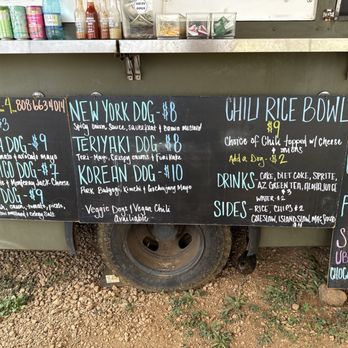 L 808 663 4104
$3
A DOG - $9
tomato + avocado Mayo
GO DOG - $7
+ Monterey Jack Cheese
DOG - $9
onion, tomato, pickle,
+ celery salt
NEW YORK DOG - $8
Spicy onion sauce, sauerkraut + brown mustard
TERIYAKI DOG - $8
Teri-Mayo, Crispy onions + Furi Kake
KOREAN DOG - $10
Pork Bulgogi, Kimchi + Gochujang Mayo
Veggie Dogs + Vegan Chili
available
CHILI RICE BOWL
$9
Choice of Chili topped w/ Cheese
+ onions
Add a Dog - $2
DRINKS - COKE, DIET COKE, SPRITE,
AZ GREEN TEA, ALOHA JUICE
$3
WATER - $2
SIDES - RICE, CHIPS $2
COLESLAW, ISLAND SLAW, MAC
$4
S
UB
CHOC